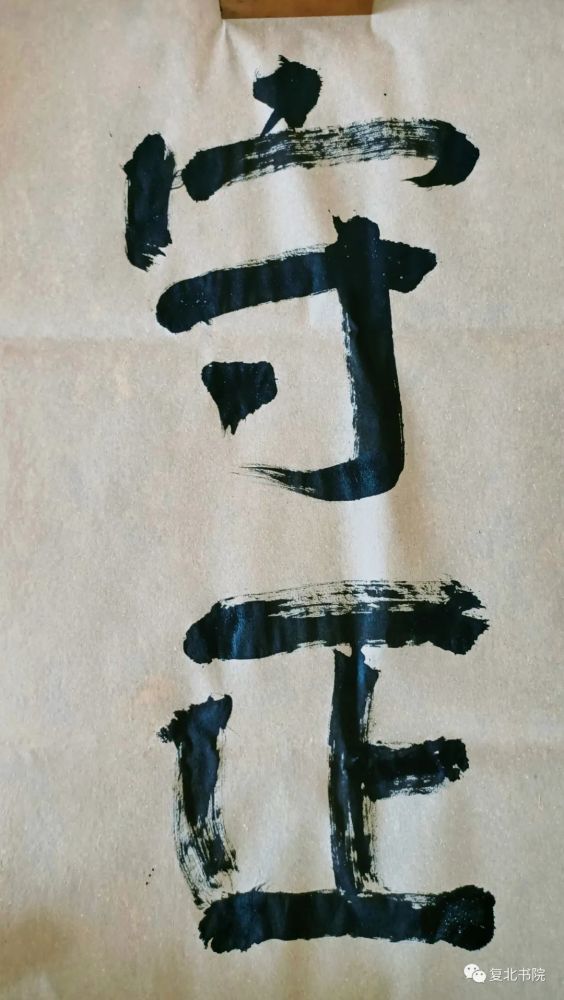 守正
复北书院